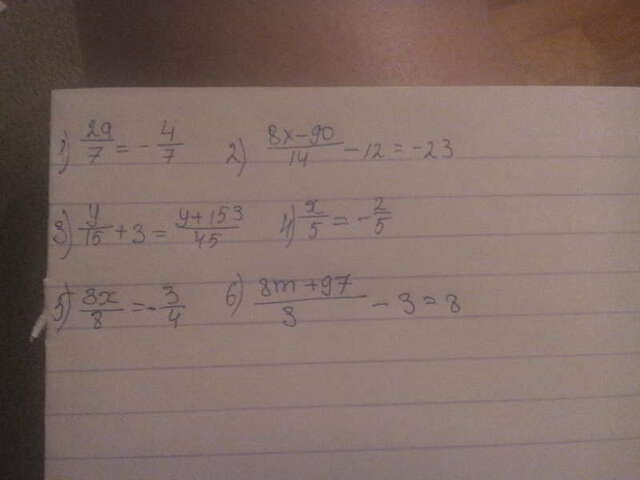 1) 2a/7 = -4/7 2) 8x-90/14 - 12 = -23
3) y/15 + 3 = y+153/45 4) x/5 = -2/5
5) 3x/8 = -3/4 6) 8m+97/3 - 3 = 8